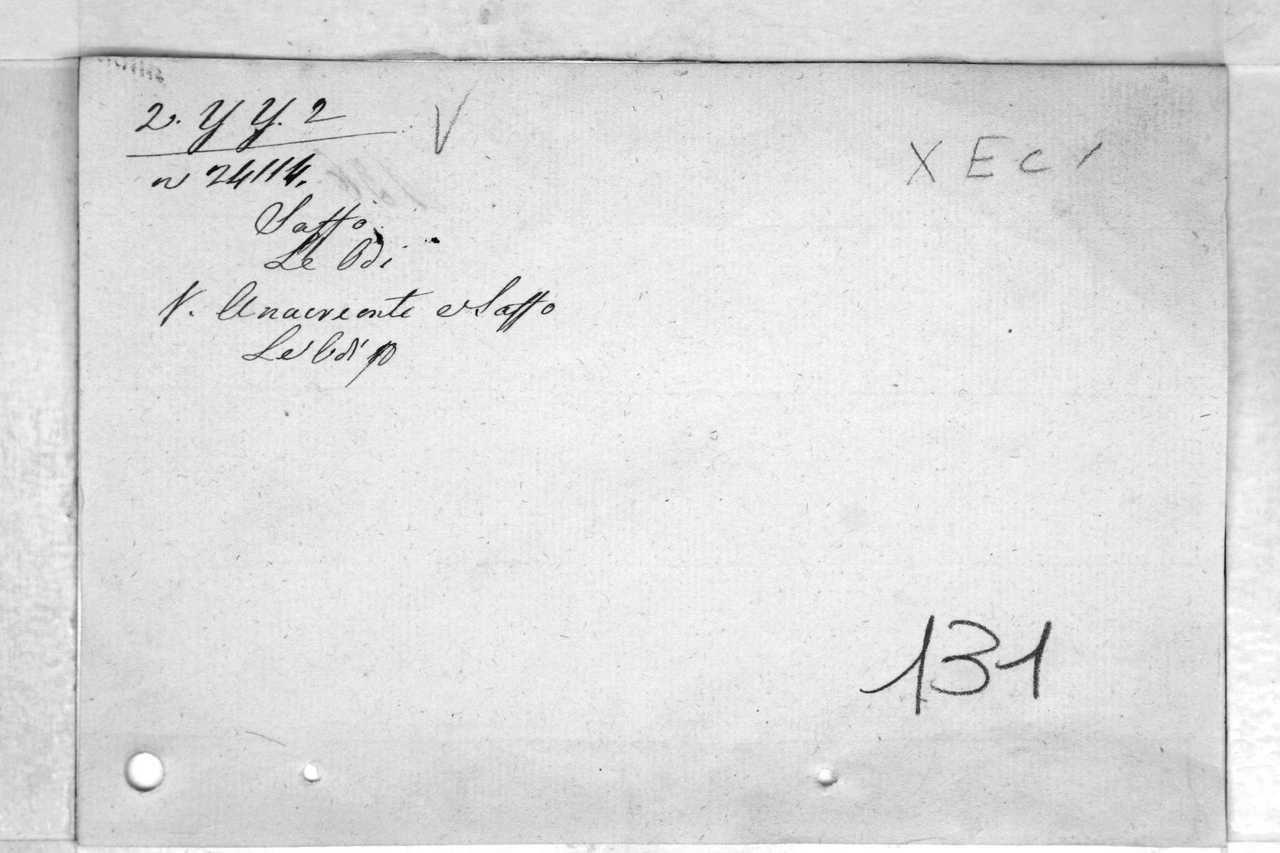 2. Y Y. 2
V
X E C /
n 24114.
Saffo
Le Odi
V. Anacreonte e Saffo
Le Odi
131